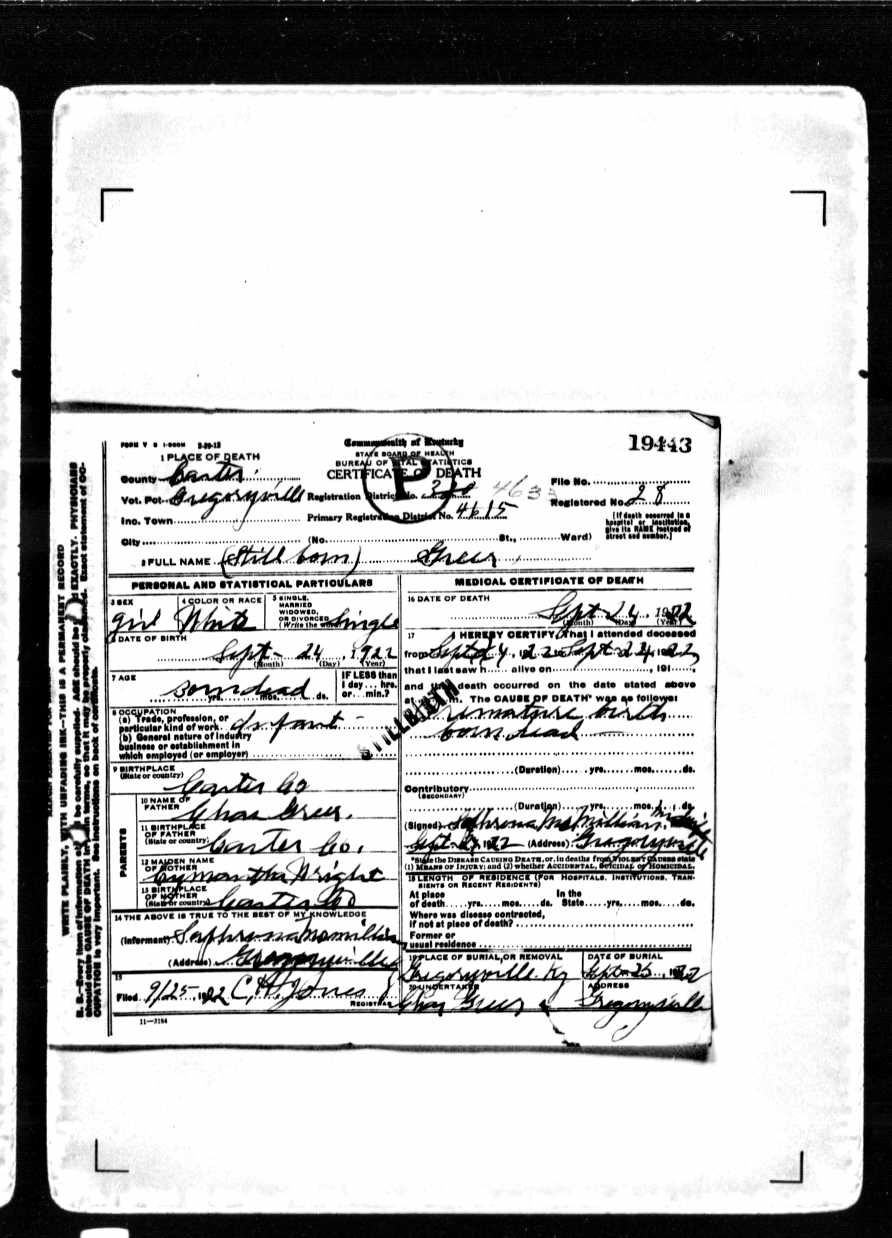 FORM V S 1-500M 3-20-12
Commonwealth of Kentucky
STATE BOARD OF HEALTH
BUREAU OF VITAL STATISTICS
CERTIFICATE OF DEATH
19443
P
1 PLACE OF DEATH
County Carter
Vot. Pct. Gregoryville
Inc. Town
City (No. St., Ward)
Registration District No. 463
Primary Registration District No. 4615
File No.
Registered No. 28
[If death occurred in a
hospital or institution,
give its NAME instead of
street and number.]
2 FULL NAME (Still born) Greer
PERSONAL AND STATISTICAL PARTICULARS
3 SEX
girl
4 COLOR OR RACE
White
5 SINGLE,
MARRIED
WIDOWED,
OR DIVORCED
(Write the word) Single
6 DATE OF BIRTH
Sept 24, 1922
(Month) (Day) (Year)
7 AGE
Born dead
yrs. mos. ds.
IF LESS than
1 day... hrs.
or... min.?
8 OCCUPATION
(a) Trade, profession, or
particular kind of work. Infant
(b) General nature of industry
business or establishment in
which employed (or employer)
9 BIRTHPLACE
(State or country)
Carter Co
PARENTS
10 NAME OF
FATHER
Chas Greer.
11 BIRTHPLACE
OF FATHER
(State or country)
Carter Co.
12 MAIDEN NAME
OF MOTHER
Wright
13 BIRTHPLACE
OF MOTHER
(State or country)
Carter Co
14 THE ABOVE IS TRUE TO THE BEST OF MY KNOWLEDGE
(Informant)
(Address) Gregoryville
15
Filed 9/25, 1922 C H Jones
REGISTRAR
11—3184
MEDICAL CERTIFICATE OF DEATH
16 DATE OF DEATH
Sept 24, 1922
(Month) (Day) (Year)
17 I HEREBY CERTIFY, that I attended deceased
from Sept 24, 1922 Sept 24, 1922
that I last saw h alive on , 191
and that death occurred on the date stated above
at m. The CAUSE OF DEATH* was as follows:
Premature birth
born dead
STILLBIRTH
(Duration) yrs. mos. ds.
Contributory
(SECONDARY)
(Duration) yrs. mos. ds.
(Signed) McMillian
Sept 1922 (Address) Gregoryville
*State the DISEASE CAUSING DEATH, or, in deaths from VIOLENT CAUSES state
(1) MEANS OF INJURY; and (2) whether ACCIDENTAL, SUICIDAL or HOMICIDAL.
18 LENGTH OF RESIDENCE (FOR HOSPITALS, INSTITUTIONS, TRAN-
SIENTS OR RECENT RESIDENTS)
At place In the
of death yrs. mos. ds. State yrs. mos. ds.
Where was disease contracted,
if not at place of death?
Former or
usual residence
19 PLACE OF BURIAL OR REMOVAL
Gregoryville Ky
DATE OF BURIAL
Sept 25, 1922
20 UNDERTAKER
Chas Greer
ADDRESS
Gregoryville
WRITE PLAINLY, WITH UNFADING INK—THIS IS A PERMANENT RECORD
N. B.—Every item of information should be carefully supplied. AGE should be stated EXACTLY. PHYSICIANS
should state CAUSE OF DEATH in plain terms, so that it may be properly classified. Exact statement of OC-
CUPATION is very important. See instructions on back of certificate.